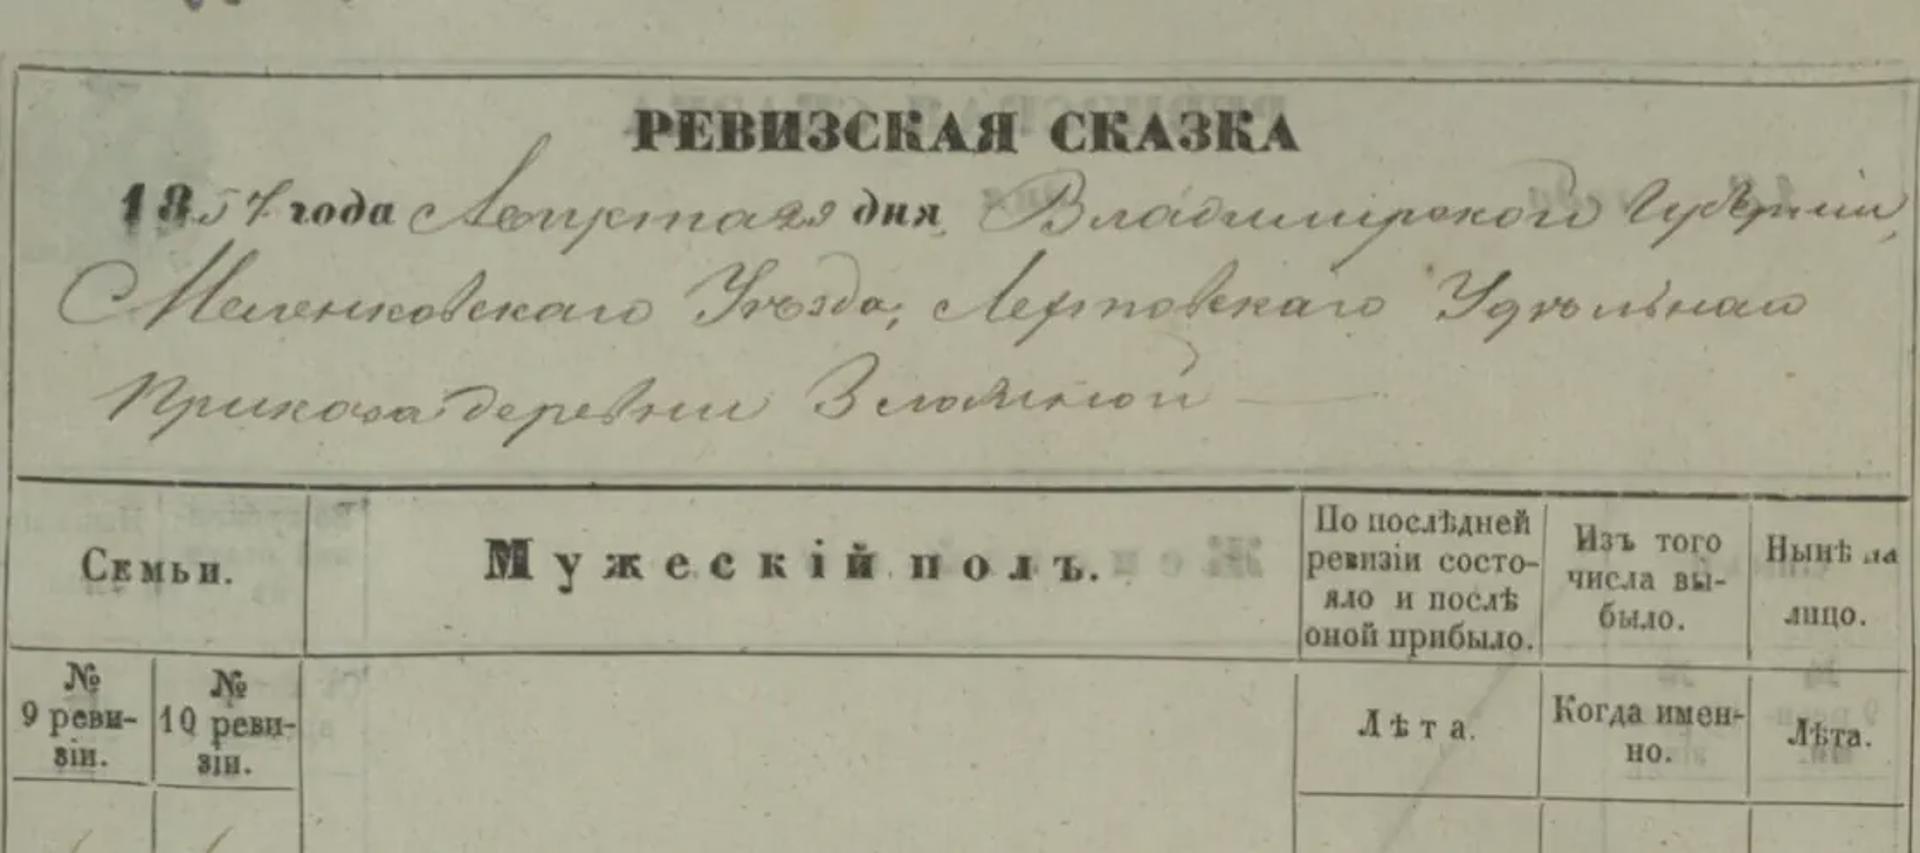 РЕВИЗСКАЯ СКАЗКА
1857 года Августа 29 дня, Владимірской Губерніи,
Меленковскаго Уѣзда, Удѣльнаго
Приказа деревни
Семьи.
Мужескій полъ.
По послѣдней
ревизіи состо-
яло и послѣ
оной прибыло.
Изъ того
числа вы-
было.
Нынѣ на
лицо.
№
9 реви-
зіи.
№
10 реви-
зіи.
Лѣта.
Когда имен-
но.
Лѣта.